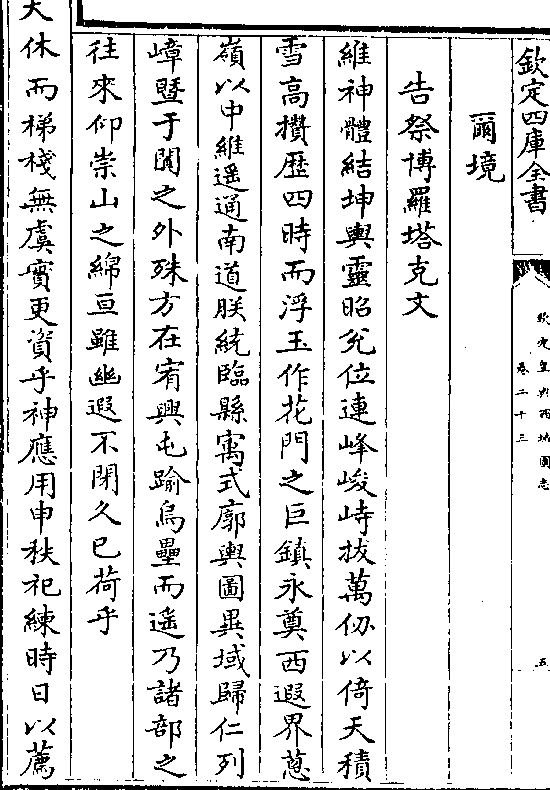 欽定四庫全書
欽定皇輿西域圖志
卷二十三
五
爾境
告祭博羅塔克文
維神體結坤輿靈昭兊位連峰峻峙拔萬仞以倚天積
雪高攢歴四時而浮玉作花門之巨鎮永奠西遐界葱
嶺以中維遥通南道朕統臨縣㝢式廓輿圖異域歸仁列
嶂暨于闐之外殊方在宥興屯踰烏壘而遥乃諸部之
往來仰崇山之綿亘雖幽遐不閉久已荷乎
天休而梯棧無虞實更資乎神應用申秩祀練時日以薦